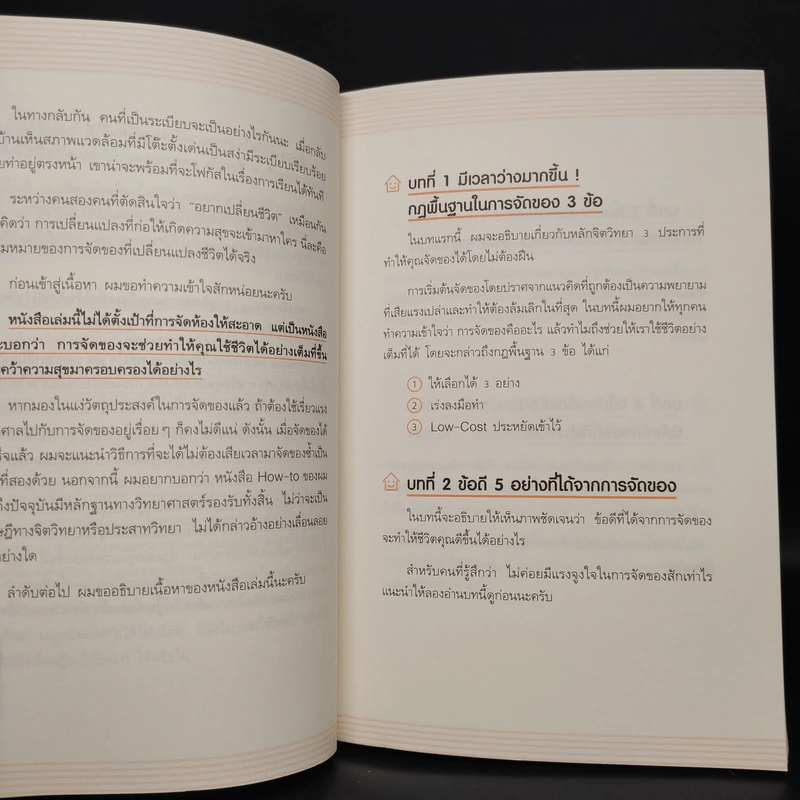 ในทางกลับกัน คนที่เป็นระเบียบจะเป็นอย่างไรกันนะ เมื่อกลับ
บ้านเห็นสภาพแวดล้อมที่มีโต๊ะตั้งเด่นเป็นสง่ามีระเบียบเรียบร้อย
ทำอยู่ตรงหน้า เขาน่าจะพร้อมที่จะโฟกัสในเรื่องการเรียนได้ทันที
ระหว่างคนสองคนที่ตัดสินใจว่า “อยากเปลี่ยนชีวิต” เหมือนกัน
คิดว่า การเปลี่ยนแปลงที่ก่อให้เกิดความสุขจะเข้ามาหาใคร นี่ละคือ
มหมายของการจัดของที่เปลี่ยนแปลงชีวิตได้จริง
ก่อนเข้าสู่เนื้อหา ผมขอทำความเข้าใจสักหน่อยนะครับ
หนังสือเล่มนี้ไม่ได้ตั้งเป้าที่การจัดห้องให้สะอาด แต่เป็นหนังสือ
ะบอกว่า การจัดของจะช่วยทำให้คุณใช้ชีวิตได้อย่างเต็มที่ขึ้น
คว้าความสุขมาครอบครองได้อย่างไร
หากมองในแง่วัตถุประสงค์ในการจัดของแล้ว ถ้าต้องใช้เรี่ยวแรง
ศาลไปกับการจัดของอยู่เรื่อยๆ ก็คงไม่ดีแน่ ดังนั้น เมื่อจัดของได้
ร็จแล้ว ผมจะแนะนำวิธีการที่จะได้ไม่ต้องเสียเวลามาจัดของซ้ำเป็น
ที่สองด้วย นอกจากนี้ ผมอยากบอกว่า หนังสือ How-to ของผม
ถึงปัจจุบันมีหลักฐานทางวิทยาศาสตร์รองรับทั้งสิ้น ไม่ว่าจะเป็น
ษฎีทางจิตวิทยาหรือประสาทวิทยา ไม่ได้กล่าวอ้างอย่างเลื่อนลอย
อย่างใด
ลำดับต่อไป ผมขออธิบายเนื้อหาของหนังสือเล่มนี้นะครับ
บทที่ 1 มีเวลาว่างมากขึ้น !
กฎพื้นฐานในการจัดของ 3 ข้อ
ในบทแรกนี้ ผมจะอธิบายเกี่ยวกับหลักจิตวิทยา 3 ประการที่
ทำให้คุณจัดของได้โดยไม่ต้องฝืน
การเริ่มต้นจัดของโดยปราศจากแนวคิดที่ถูกต้องเป็นความพยายาม
ที่เสียแรงเปล่าและทำให้ต้องล้มเลิกในที่สุด ในบทนี้ผมอยากให้ทุกคน
ทำความเข้าใจว่า การจัดของคืออะไร แล้วทำไมถึงช่วยให้เราใช้ชีวิตอย่าง
เต็มที่ได้ โดยจะกล่าวถึงกฎพื้นฐาน 3 ข้อ ได้แก่
① ให้เลือกได้ 3 อย่าง
② เร่งลงมือทำ
③ Low-Cost ประหยัดเข้าไว้
บทที่ 2 ข้อดี 5 อย่างที่ได้จากการจัดของ
ในบทนี้จะอธิบายให้เห็นภาพชัดเจนว่า ข้อดีที่ได้จากการจัดของ
จะทำให้ชีวิตคุณดีขึ้นได้อย่างไร
สำหรับคนที่รู้สึกว่า ไม่ค่อยมีแรงจูงใจในการจัดของสักเท่าไร
แนะนำให้ลองอ่านบทนี้ดูก่อนนะครับ